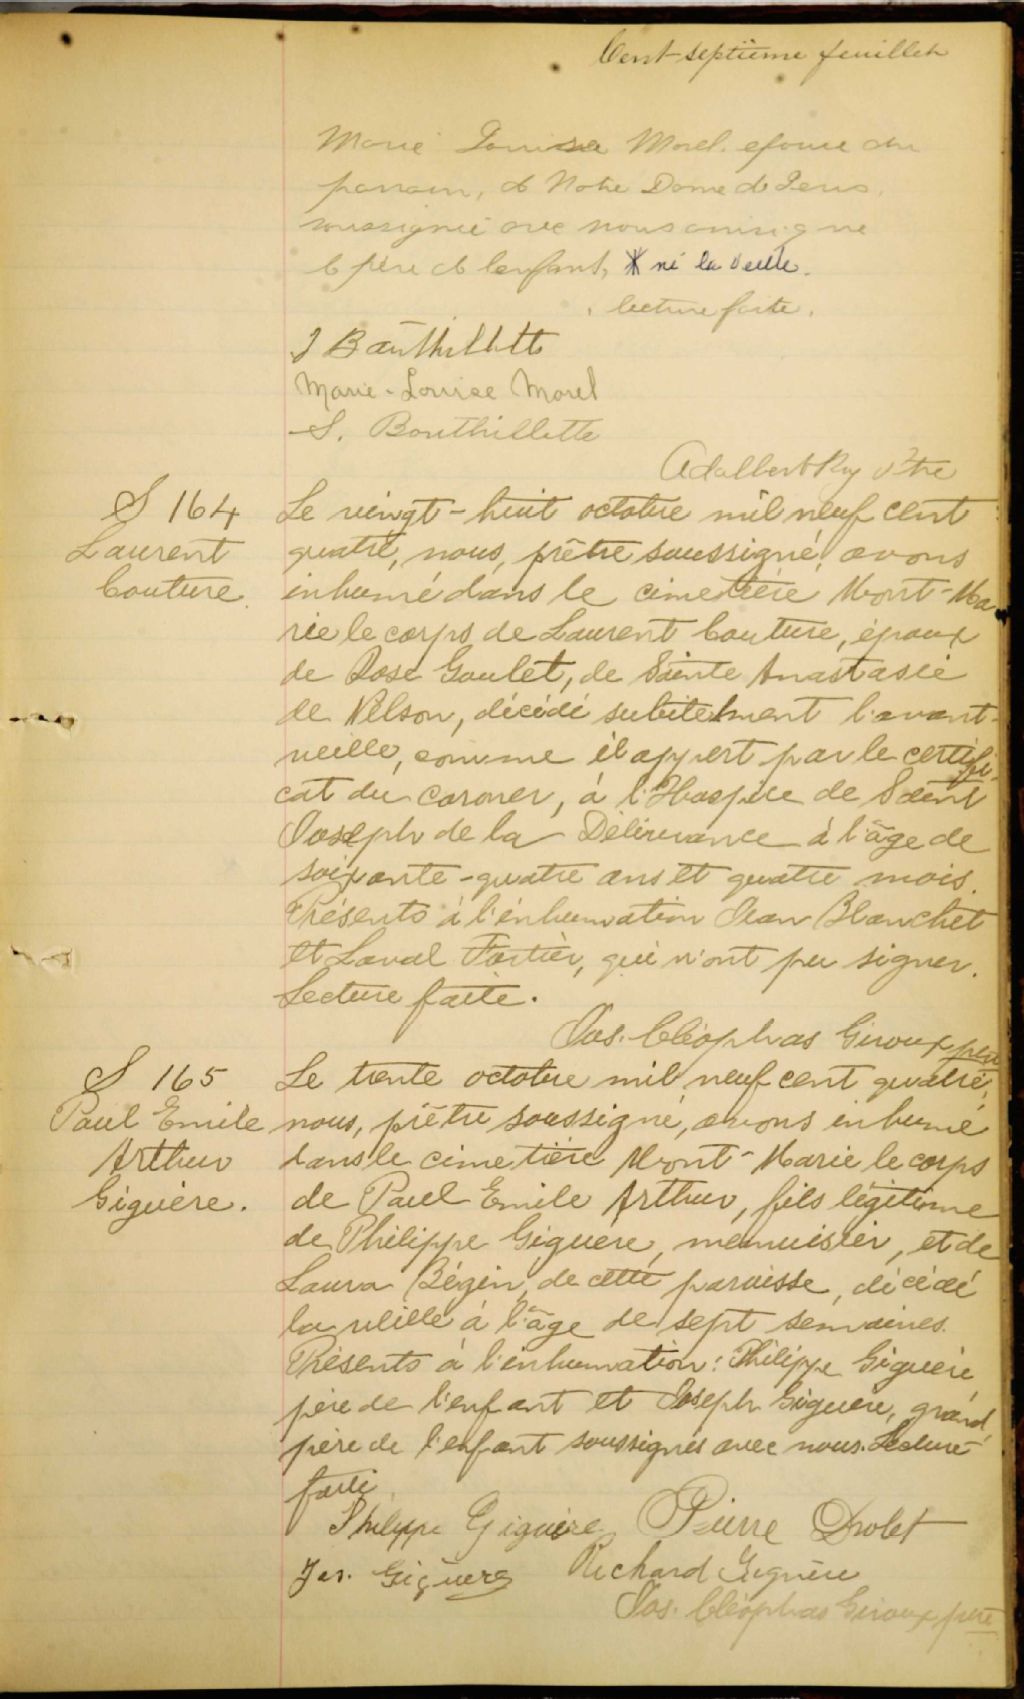 Cent-septième feuillet
Marie Louise Morel épouse du
parrain, de Notre Dame de
soussignée avec nous ainsi que
le père de l'enfant, * né la veille.
lecture faite.
J Bouthillette
Marie-Louise Morel
S. Bouthillette
Adalbert Roy Ptre
S 164
Laurent
Couture
Le vingt-huit octobre mil neuf cent
quatre, nous, prêtre soussigné, avons
inhumé dans le cimetière Mont-Ma
rie le corps de Laurent Couture, époux
de Rose Goulet, de Sainte Anastasie
de Nelson, décédé subitement l'avant-
veille, comme il appert par le certifi-
cat du coroner, à l'Hospice de Saint
Joseph de la Délivrance à l'âge de
soixante-quatre ans et quatre mois.
Présents à l'inhumation Jean Blanchet
et Laval Fortier, qui n'ont pu signer.
Lecture faite.
Jos. Cléophas Giroux ptre
S 165
Paul Emile
Arthur
Giguère.
Le trente octobre mil neuf cent quatre,
nous, prêtre soussigné, avons inhumé
dans le cimetière Mont-Marie le corps
de Paul Emile Arthur, fils légitime
de Philippe Giguère, menuisier, et de
Laura Bégin, de cette paroisse, décédé
la veille à l'âge de sept semaines.
Présents à l'inhumation: Philippe Giguère
père de l'enfant et Joseph Giguère, grand
père de l'enfant soussignés avec nous. Lecture
faite
Philippe Giguère Pierre Drolet
Jos. Giguère Richard Giguère
Jos. Cléophas Giroux ptre